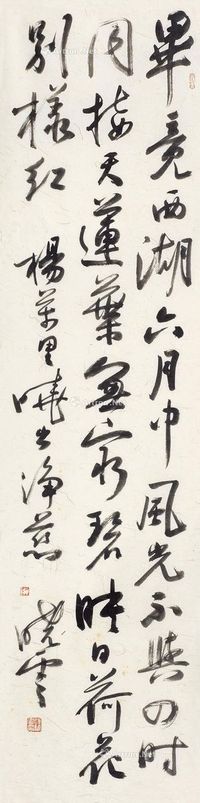 畢竟西湖六月中風光不與四時
同接天蓮葉無窮碧映日荷花
別樣紅 楊萬里曉出淨慈
曉雲